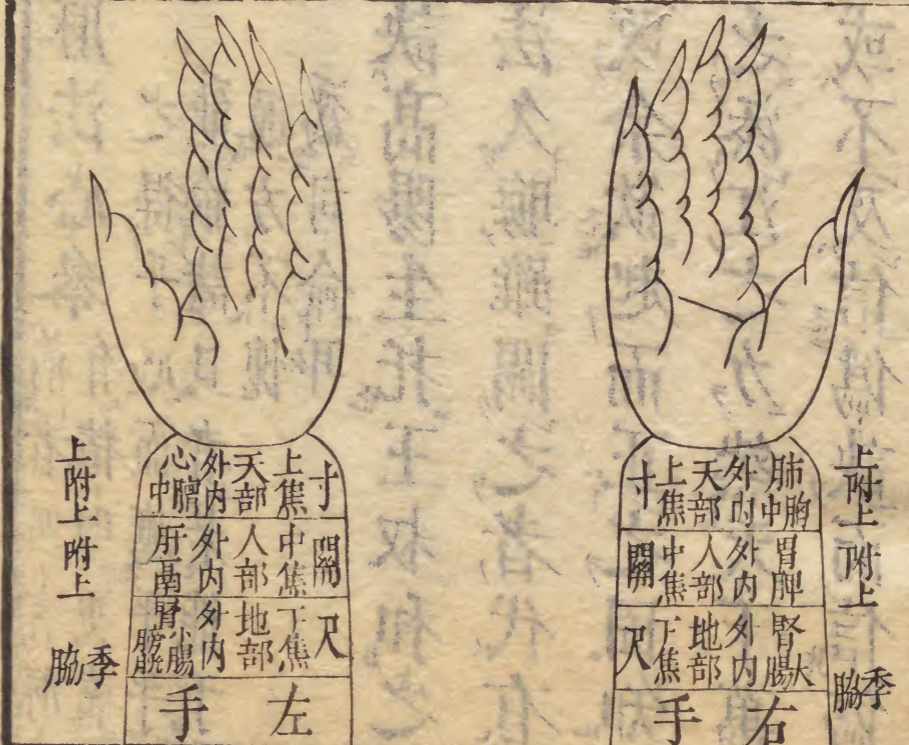 上附上
附上
季脇
肺胸中 外内 天部 上焦 寸
胃脾 外内 人部 中焦 關
腎大腸 外内 地部 下焦 尺
右手
寸 上焦 天部 外内 心膻中
關 中焦 人部 外内 肝鬲
尺 下焦 地部 外内 腎小腸膀胱
左手
上附上
附上
季脇